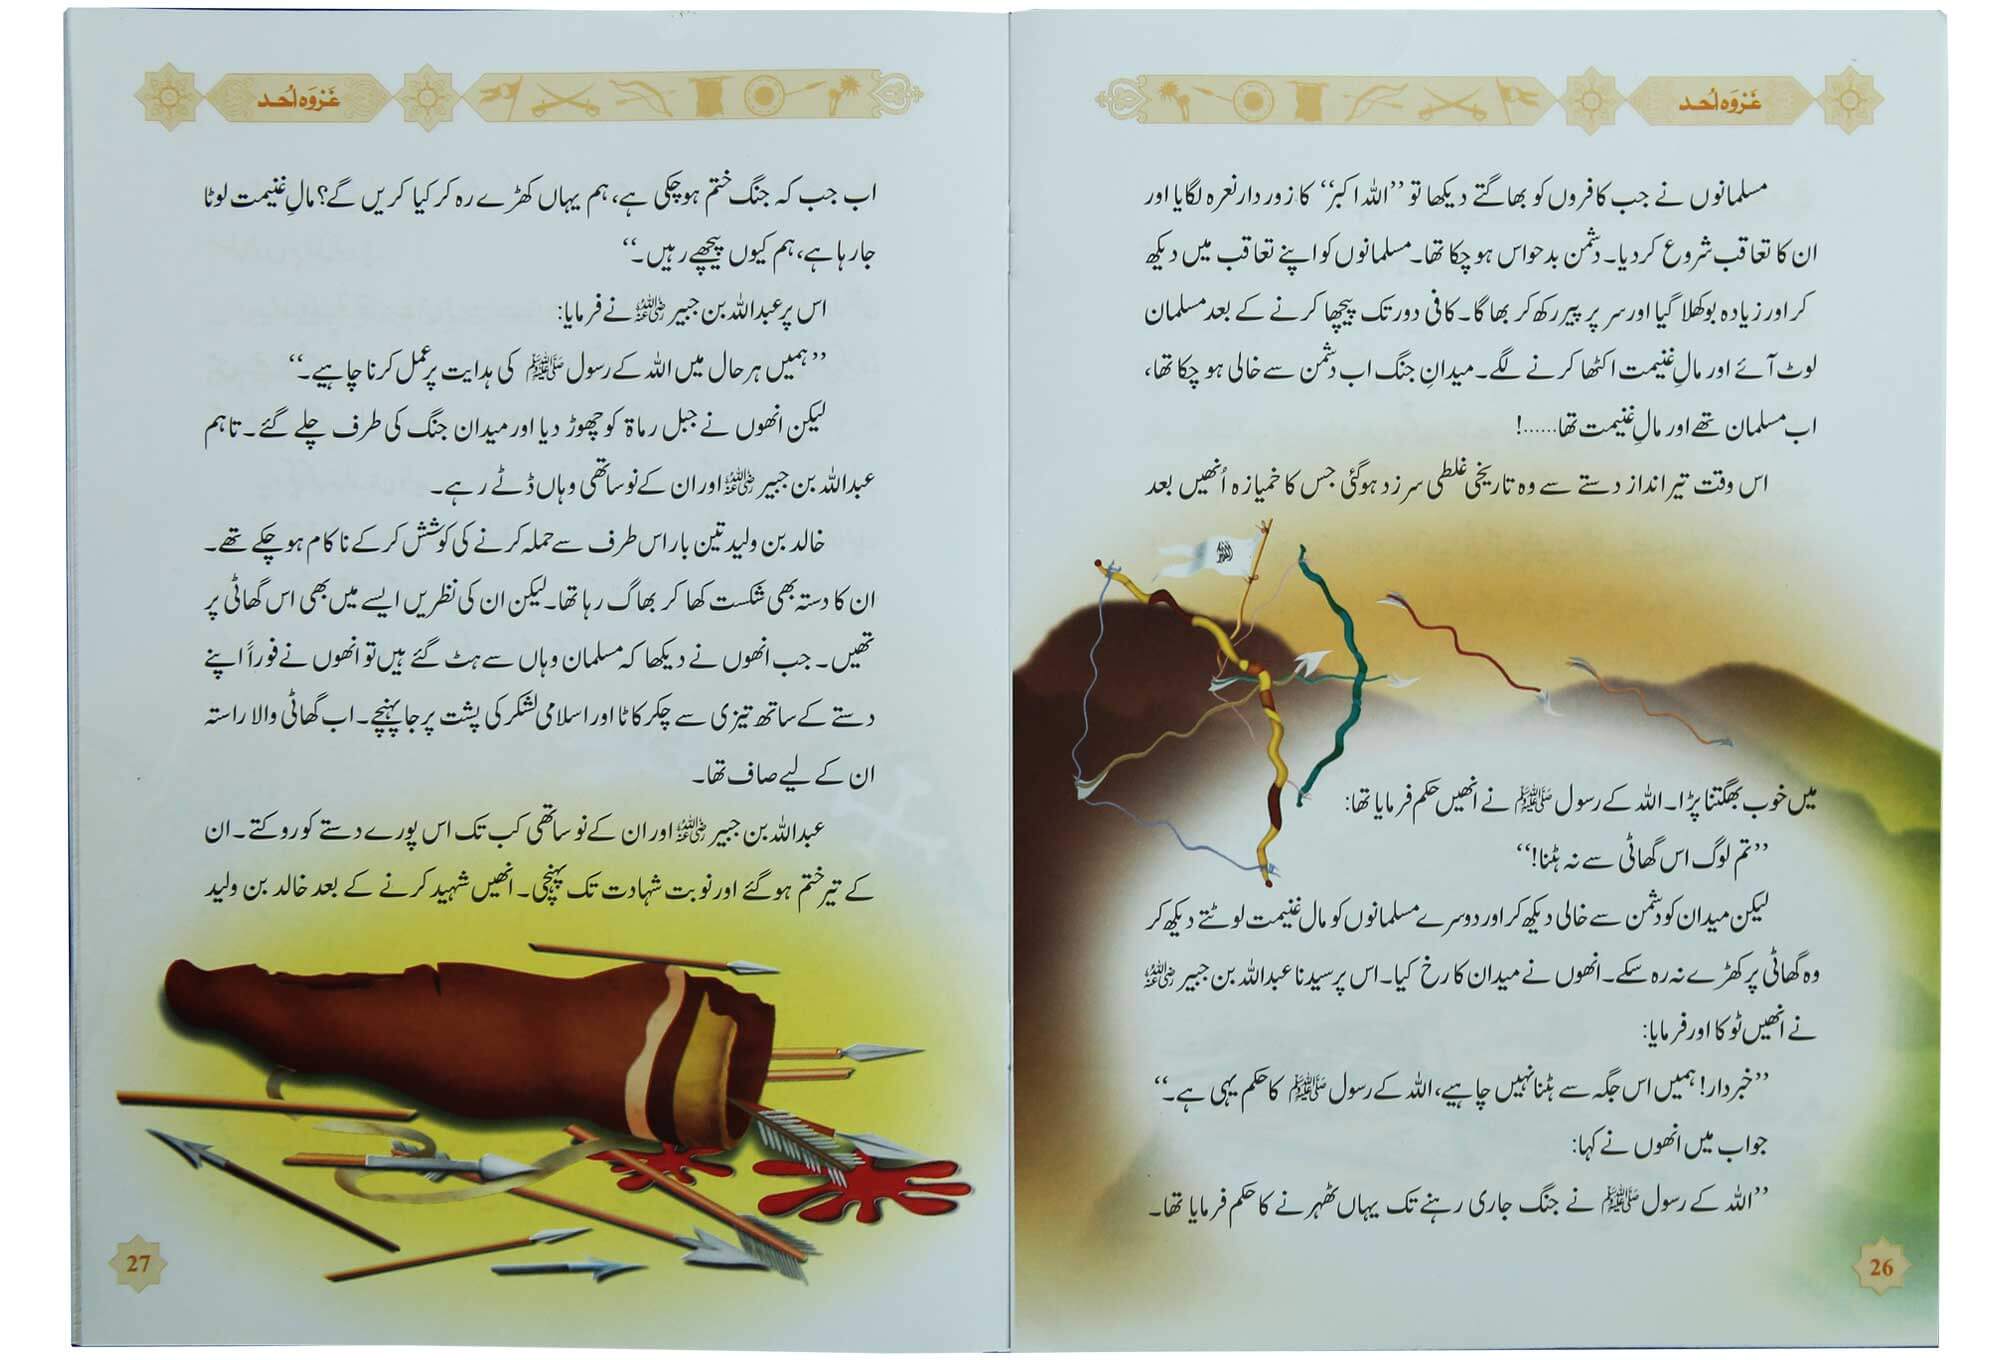 غزوہ اُحد
مسلمانوں نے جب کافروں کو بھاگتے دیکھا تو ’’اللہ اکبر‘‘ کا زور دار نعرہ لگایا اور
ان کا تعاقب شروع کر دیا۔ دشمن بدحواس ہو چکا تھا۔ مسلمانوں کو اپنے تعاقب میں دیکھ
کر اور زیادہ بوکھلا گیا اور سر پر پیر رکھ کر بھاگا۔ کافی دور تک پیچھا کرنے کے بعد مسلمان
لوٹ آئے اور مالِ غنیمت اکٹھا کرنے لگے۔ میدانِ جنگ اب دشمن سے خالی ہو چکا تھا،
اب مسلمان تھے اور مالِ غنیمت تھا......!
اس وقت تیر انداز دستے سے وہ تاریخی غلطی سرزد ہوگئی جس کا خمیازہ اُنھیں بعد
میں خوب بھگتنا پڑا۔ اللہ کے رسول ﷺ نے انھیں حکم فرمایا تھا:
’’تم لوگ اس گھاٹی سے نہ ہٹنا!‘‘
لیکن میدان کو دشمن سے خالی دیکھ کر اور دوسرے مسلمانوں کو مال غنیمت لوٹتے دیکھ کر
وہ گھاٹی پر کھڑے نہ رہ سکے۔ انھوں نے میدان کا رخ کیا۔ اس پر سیدنا عبداللہ بن جبیر رضی اللہ عنہ
نے انھیں ٹوکا اور فرمایا:
’’خبردار! ہمیں اس جگہ سے ہٹنا نہیں چاہیے، اللہ کے رسول ﷺ کا حکم یہی ہے۔‘‘
جواب میں انھوں نے کہا:
’’اللہ کے رسول ﷺ نے جنگ جاری رہنے تک یہاں ٹھہرنے کا حکم فرمایا تھا۔
26
غزوہ اُحد
اب جب کہ جنگ ختم ہوچکی ہے، ہم یہاں کھڑے رہ کر کیا کریں گے؟ مالِ غنیمت لوٹا
جارہا ہے، ہم کیوں پیچھے رہیں۔‘‘
اس پر عبداللہ بن جبیر رضی اللہ عنہ نے فرمایا:
’’ہمیں ہر حال میں اللہ کے رسول ﷺ کی ہدایت پر عمل کرنا چاہیے۔‘‘
لیکن انھوں نے جبل رماۃ کو چھوڑ دیا اور میدان جنگ کی طرف چلے گئے۔ تاہم
عبداللہ بن جبیر رضی اللہ عنہ اور ان کے نو ساتھی وہاں ڈٹے رہے۔
خالد بن ولید تین بار اس طرف سے حملہ کرنے کی کوشش کرکے ناکام ہوچکے تھے۔
ان کا دستہ بھی شکست کھا کر بھاگ رہا تھا۔ لیکن ان کی نظریں ایسے میں بھی اس گھاٹی پر
تھیں۔ جب انھوں نے دیکھا کہ مسلمان وہاں سے ہٹ گئے ہیں تو انھوں نے فوراً اپنے
دستے کے ساتھ تیزی سے چکر کاٹا اور اسلامی لشکر کی پشت پر جا پہنچے۔ اب گھاٹی والا راستہ
ان کے لیے صاف تھا۔
عبداللہ بن جبیر رضی اللہ عنہ اور ان کے نو ساتھی کب تک اس پورے دستے کو روکتے۔ ان
کے تیر ختم ہوگئے اور نوبت شہادت تک پہنچی۔ انھیں شہید کرنے کے بعد خالد بن ولید
27